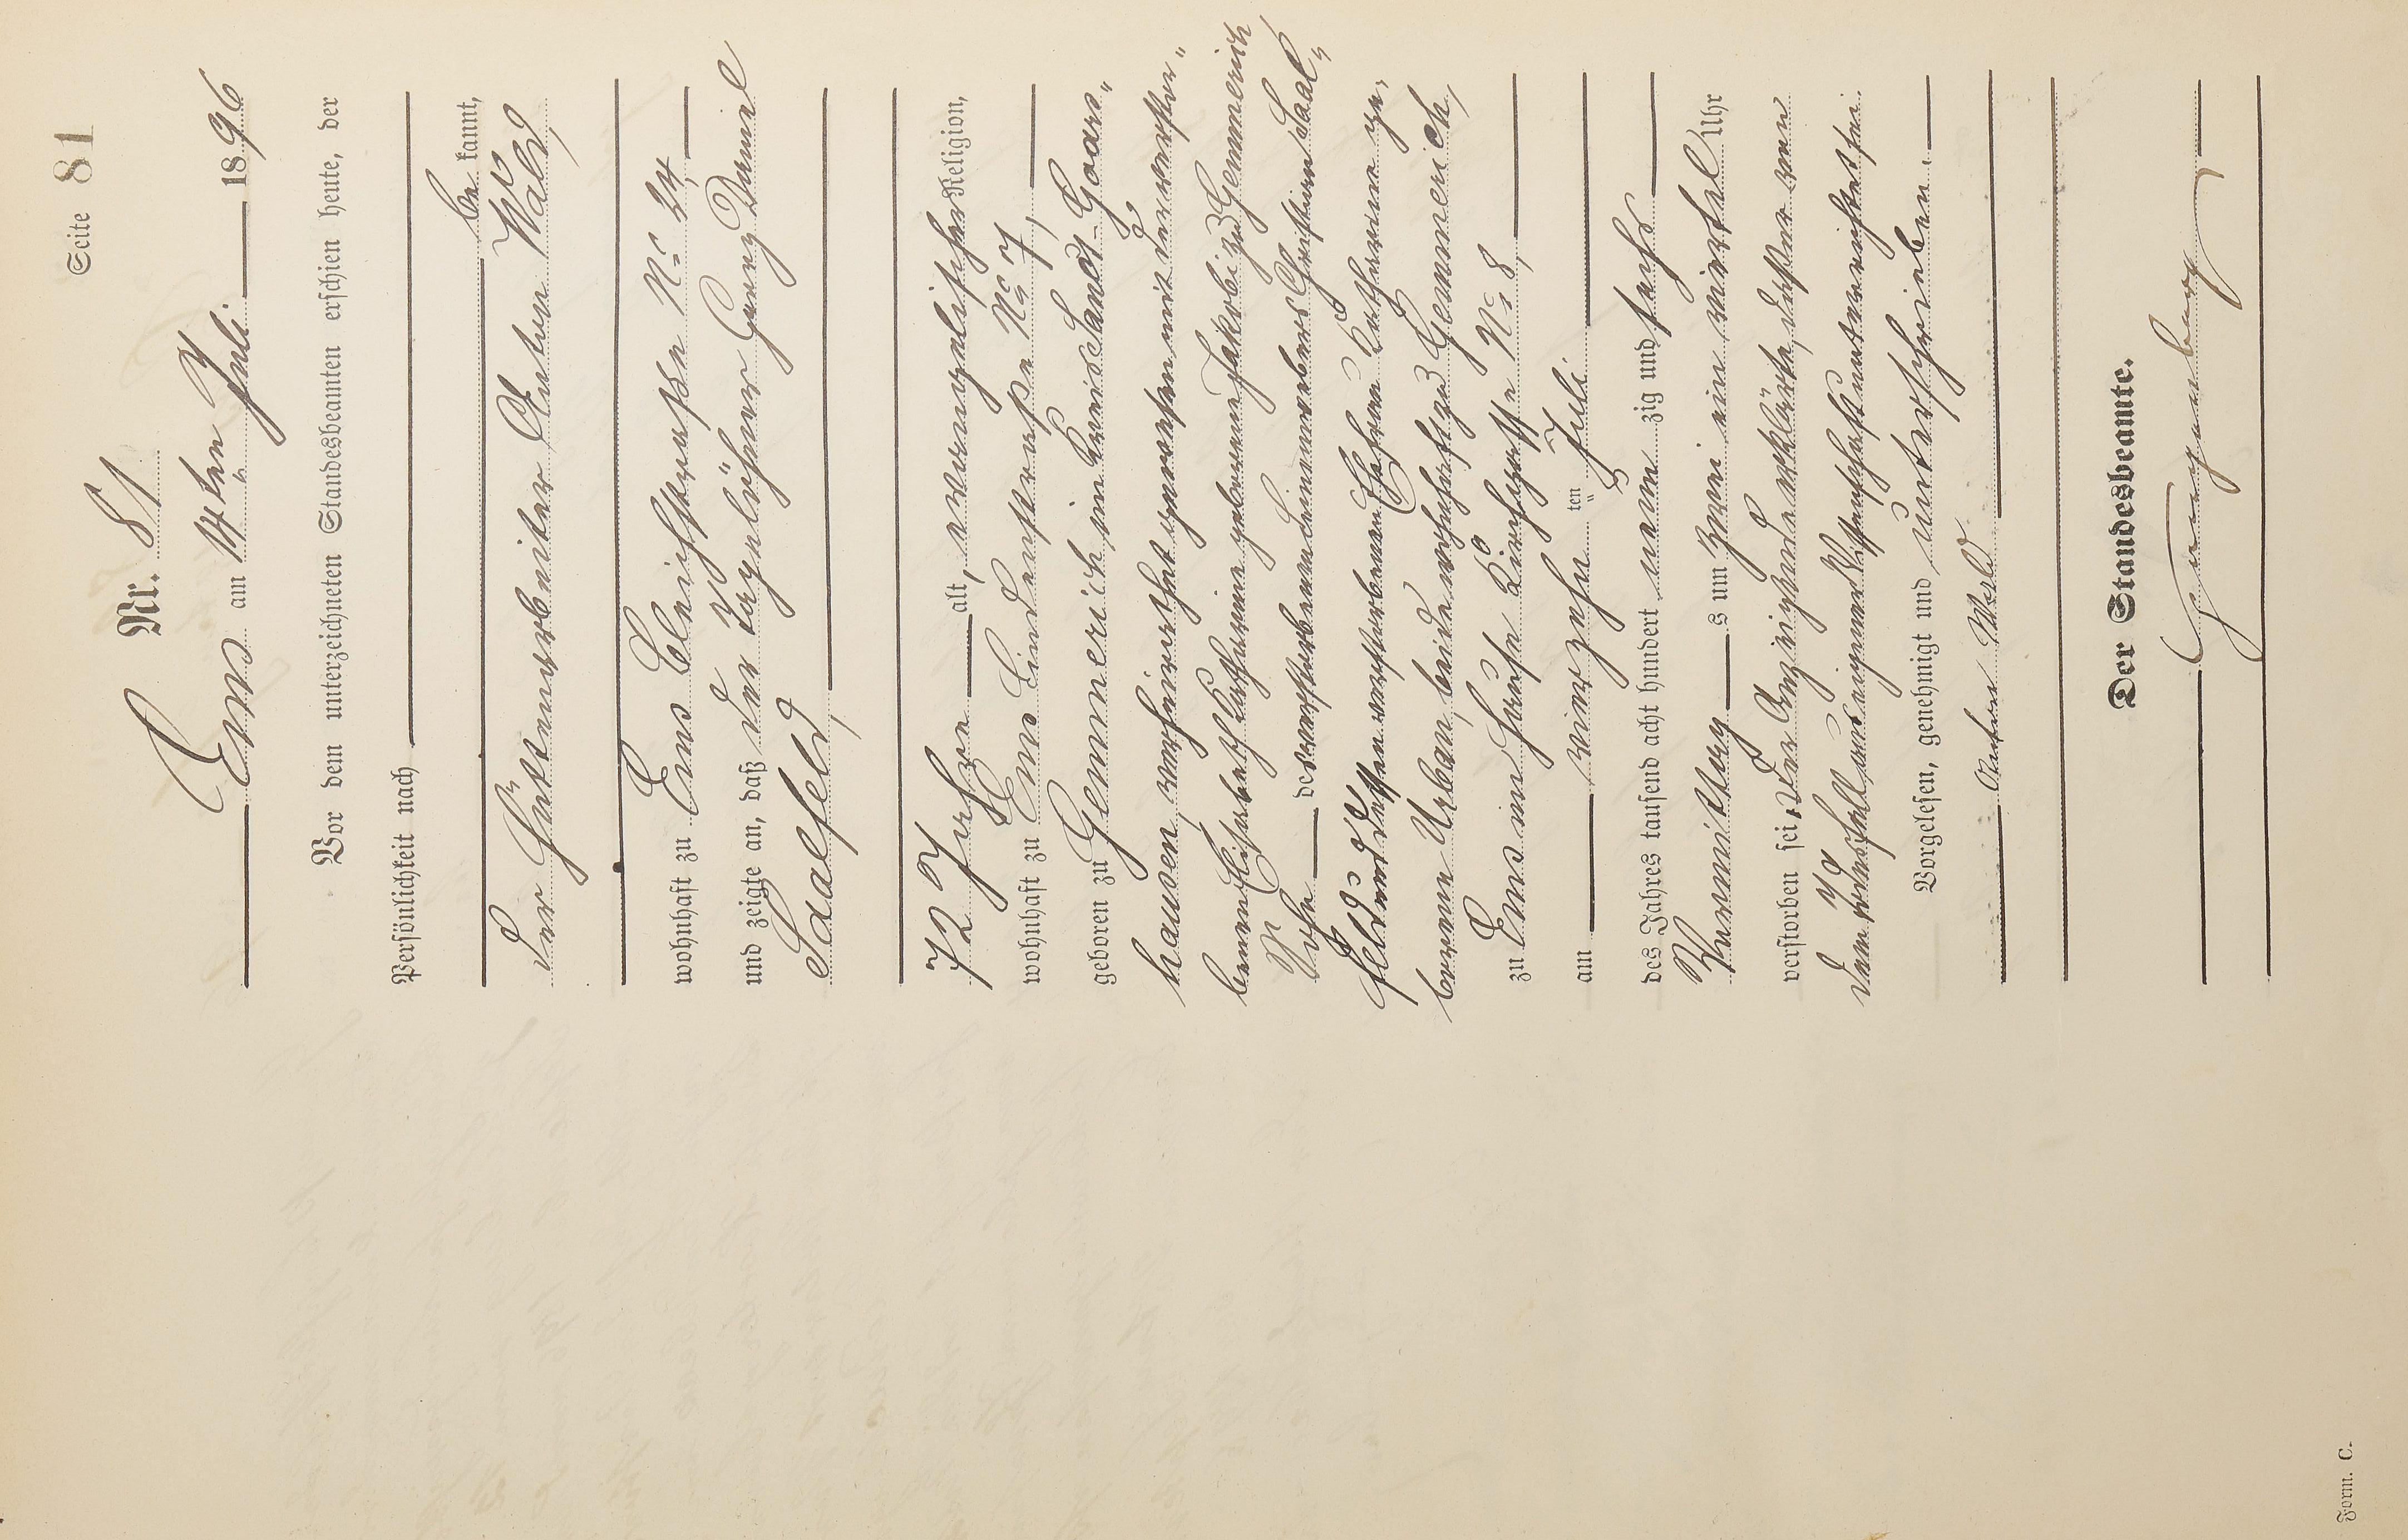 Seite 81
Nr. 81
Ems am 14ten Juli 1896
Vor dem unterzeichneten Standesbeamten erschien heute, der
Persönlichkeit nach
be kannt,
der Hüttenarbeiter Anton Wald,
wohnhaft zu Ems Bleichstraße No 24
und zeigte an, daß der Tagelöhner Georg Daniel
Saalfeld,
72 Jahre alt, evangelischer Religion,
wohnhaft zu Ems Lindenstraße No 7,
geboren zu Gemmerich im Kreis Sanct-Goars„
hausen, verheirathet gewesen mit der verstor„
benen Elisabeth Katharine geborenen Jakobi zu Gemmerich
Sohn des verstorbenen Christian Saal„
feld und dessen verstorbenen Ehefrau Katharina ge„
borene Urban, beide wohnhaft zu Gemmerich,
zu Ems im Hause Kirchgasse No 8,
am vierzehn ten Juli
des Jahres tausend acht hundert neun zig und sechs
Vormittags um zwei ein viertel Uhr
verstorben sei, der Anzeigende erklärte, daß er von
dem Todesfall aus eigener Wissenschaft unterrichtet sei.
Vorgelesen, genehmigt und unterschrieben.
Anton Wald
Der Standesbeamte.
Form. C.